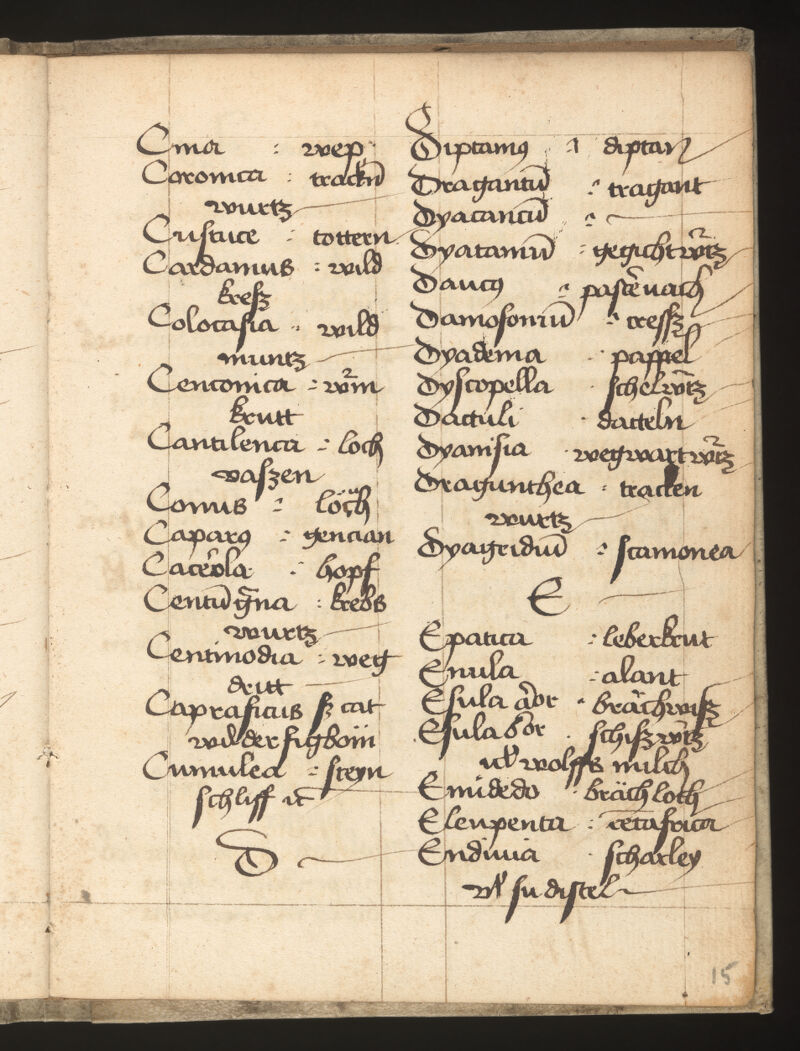 Cma : wep
Coronica : trackn̄
wurtz
Custuce : tottern
Cardamus : wild
kresz
Colocasia : wild
muntz
Centonica : wͬm
krutt
Cantilenca : loch
vaszen
Conus : löch
Caparꝯ : gencian
Caceͬola : hopf
Centūgͣna : krebs
wurtz
Centinodia : weg
dritt
Caprasicus sz cat
wilder figböm
Cumulea : steyn
schliff ic̄
D
Diptamꝯ : diptan
Dragantū : tragant
Dyacancū :
Dyatamū : gegichtwͬtz
Daucꝯ : pastēnach
Damosoniū : cressz
Dyadema : pappel
Dyscopella : schelwͬtz
Dactuli : datteln
Dyanisia wegwartwͬtz
Dragunthea : tracken
wurtz
Dyagridiū : scamonea
E
Epatica : leberkrut
Enula : alant
Esula aͬor : brächwisz
Esula bͬor : schiszwͬtz
ul̄ wolffs milch
Emidedo : bräch loch
Eleupenta : cētafoica
Endiuia : scharley
vl̄ su distel
15